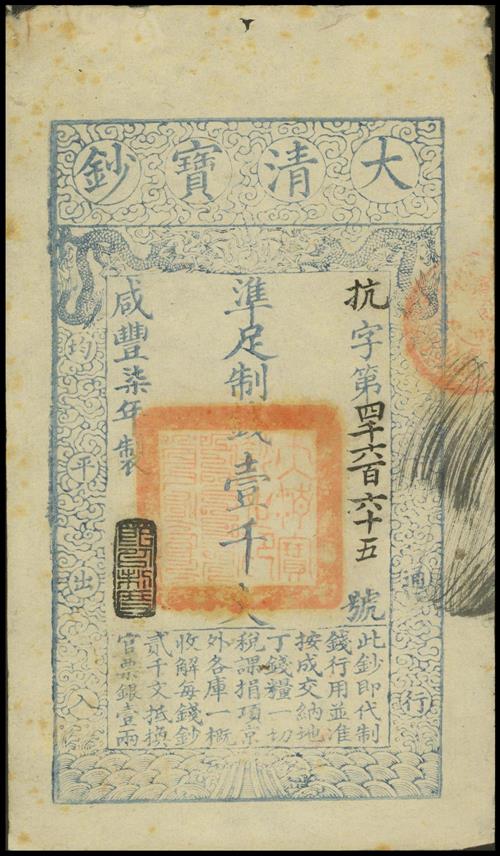 大清寶鈔
通行
抗字第四千六百六十五號
準足制錢壹千文
咸豐柒年製
均平出入
此鈔即代制
錢行用並准
按成交納地
丁錢糧一切
稅課捐項京
外各庫一概
收解每錢鈔
貳千文抵換
官票銀壹兩